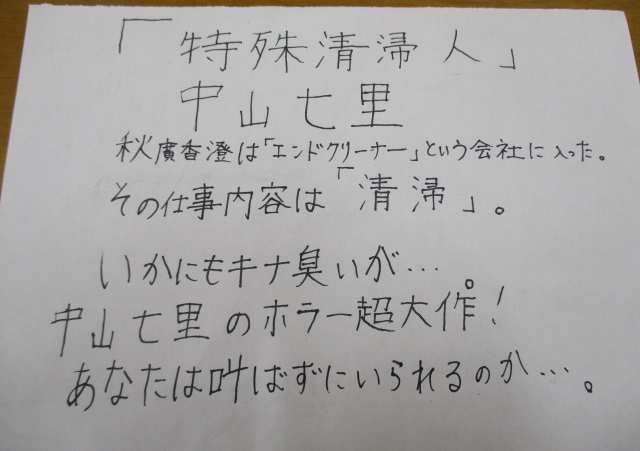 「特殊清掃人」
中山七里
秋廣香澄は「エンドクリーナー」という会社に入った。
その仕事内容は「清掃」。
いかにもキナ臭いが…。
中山七里のホラー超大作!
あなたは叫ばずにいられるのか…。